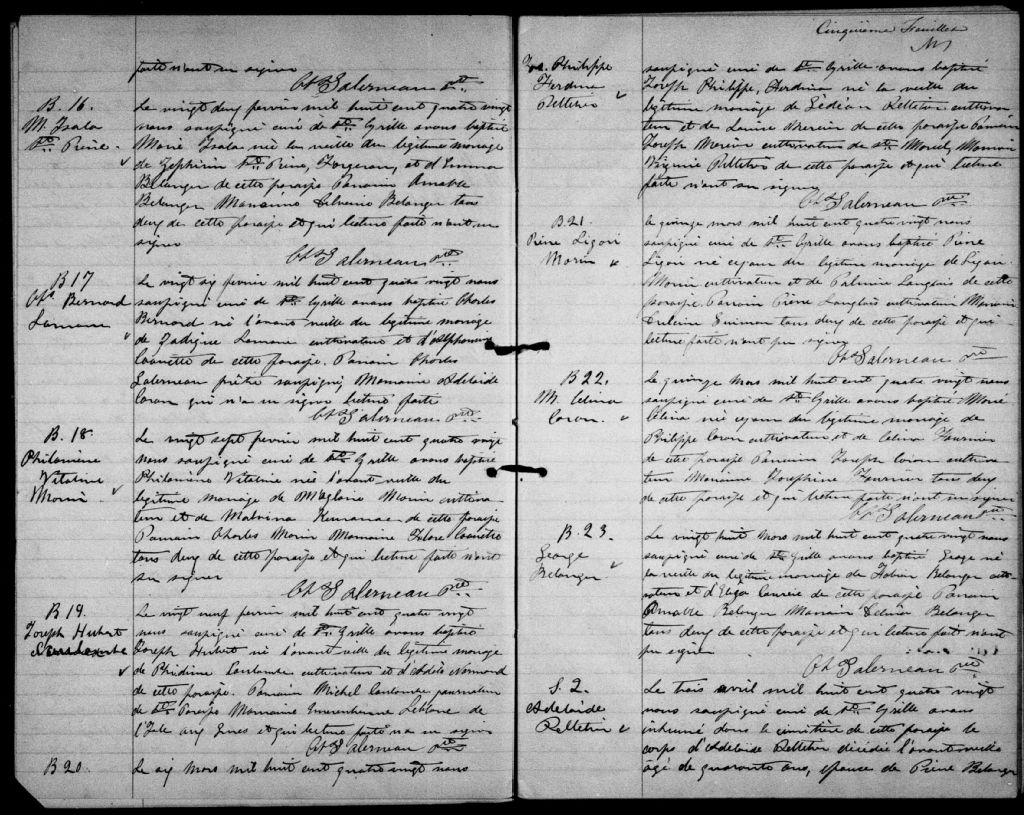 faite n'ont su signer
Chs Galerneau Ptre
B. 16.
M. Isala
St. Pierre.
Le vingt deux fevrier mil huit cent quatre vingt
nous soussigné curé de St. Cyrille avons baptisé
Marie Isala née la veille du légitime mariage
de Zephirin St. Pierre, Forgeron, et d'Emma
Belanger de cette paroisse Parrain Amable
Belanger Marraine Silvenie Belanger tous
deux de cette paroisse et qui lecture faite n'ont su
signer
Chs Galerneau ptre
B 17
Chs Bernard
Le vingt six fevrier mil huit cent quatre vingt nous
soussigné curé de St. Cyrille avons baptisé Charles
Bernard né l'avant veille du legitime mariage
de cultivateur et d'Alphonsine
de cette paroisse. Parrain Charles
Galerneau prêtre soussigné, Marraine Adelaide
Caron qui n'a su signer lecture faite
Chs Galerneau ptre
B. 18.
Philomine
Vitaline
Morin
Le vingt sept fevrier mil huit cent quatre vingt
nous soussigné curé de St. Cyrille avons baptisé
Philomine Vitaline née l'avant veille du
legitime mariage de Magloire Morin cultiva-
teur et de de cette paroisse
Parrain Charles Morin Marraine
tous deux de cette paroisse et qui lecture faite n'ont
su signer
Chs Galerneau Ptre
B 19.
Joseph Hubert
Le vingt neuf fevrier mil huit cent quatre vingt
nous soussigné curé de St. Cyrille avons baptisé
Joseph Hubert né l'avant veille du légitime mariage
de cultivateur et d'Adèle Normand
de cette paroisse. Parrain Michel journalier
de St. Marraine Leblanc de
l'Isle aux Grues et qui lecture faite n'a su signer
Chs Galerneau Ptre
B 20.
Le six mars mil huit cent quatre vingt nous
Cinquième Feuillet
Jos. Philippe
Pelletier
soussigné curé de St. Cyrille avons baptisé
Joseph Philippe, né la veille du
légitime mariage de Pelletier cultiva-
teur et de Louise Mercier de cette paroisse Parrain
Joseph Morin cultivateur de St. Marcel, Marraine
Virginie Pelletier de cette paroisse et qui lecture
faite n'ont su signer
Chs Galerneau ptre
B 21.
Pierre Ligori
Morin
Le quinze mars mil huit cent quatre vingt nous
soussigné curé de St. Cyrille avons baptisé Pierre
Ligori né ce jour du legitime mariage de Ligori
Morin cultivateur et de Palmire Langlais de cette
paroisse Parrain Pierre Langlais cultivateur Marraine
tous deux de cette paroisse et qui
lecture faite n'ont pu signer
Chs Galerneau ptre
B 22.
M. Célina
Caron.
Le quinze Mars mil huit cent quatre vingt nous
soussigné curé de St. Cyrille avons baptisé Marie
Célina né ce jour du legitime mariage de
Philippe Caron cultivateur et de Celina Fournier
de cette paroisse Parrain Joseph Caron cultiva-
teur Marraine Josephine Fournier tous deux
de cette paroisse et qui lecture faite n'ont su signer
Chs Galerneau ptre
B. 23.
George
Belanger
Le vingt huit Mars mil huit cent quatre vingt nous
soussigné curé de Ste Cyrille avons baptisé George né
la veille du legitime mariage de Belanger culti-
vateur et d'Eliza de cette paroisse Parrain
Amable Belanger Marraine Belanger
tous deux de cette paroisse et qui lecture fait n'ont
pu signer
Chs Galerneau ptre
S. 2.
Adelaide
Pelletier
Le trois avril mil huit cent quatre vingt
nous soussigné curé de St. Cyrille avons
inhumé dans le cimitière de cette paroisse le
corps d'Adelaide Pelletier décédée l'avant veille
âgé de quarante ans, epouse de Pierre Belanger